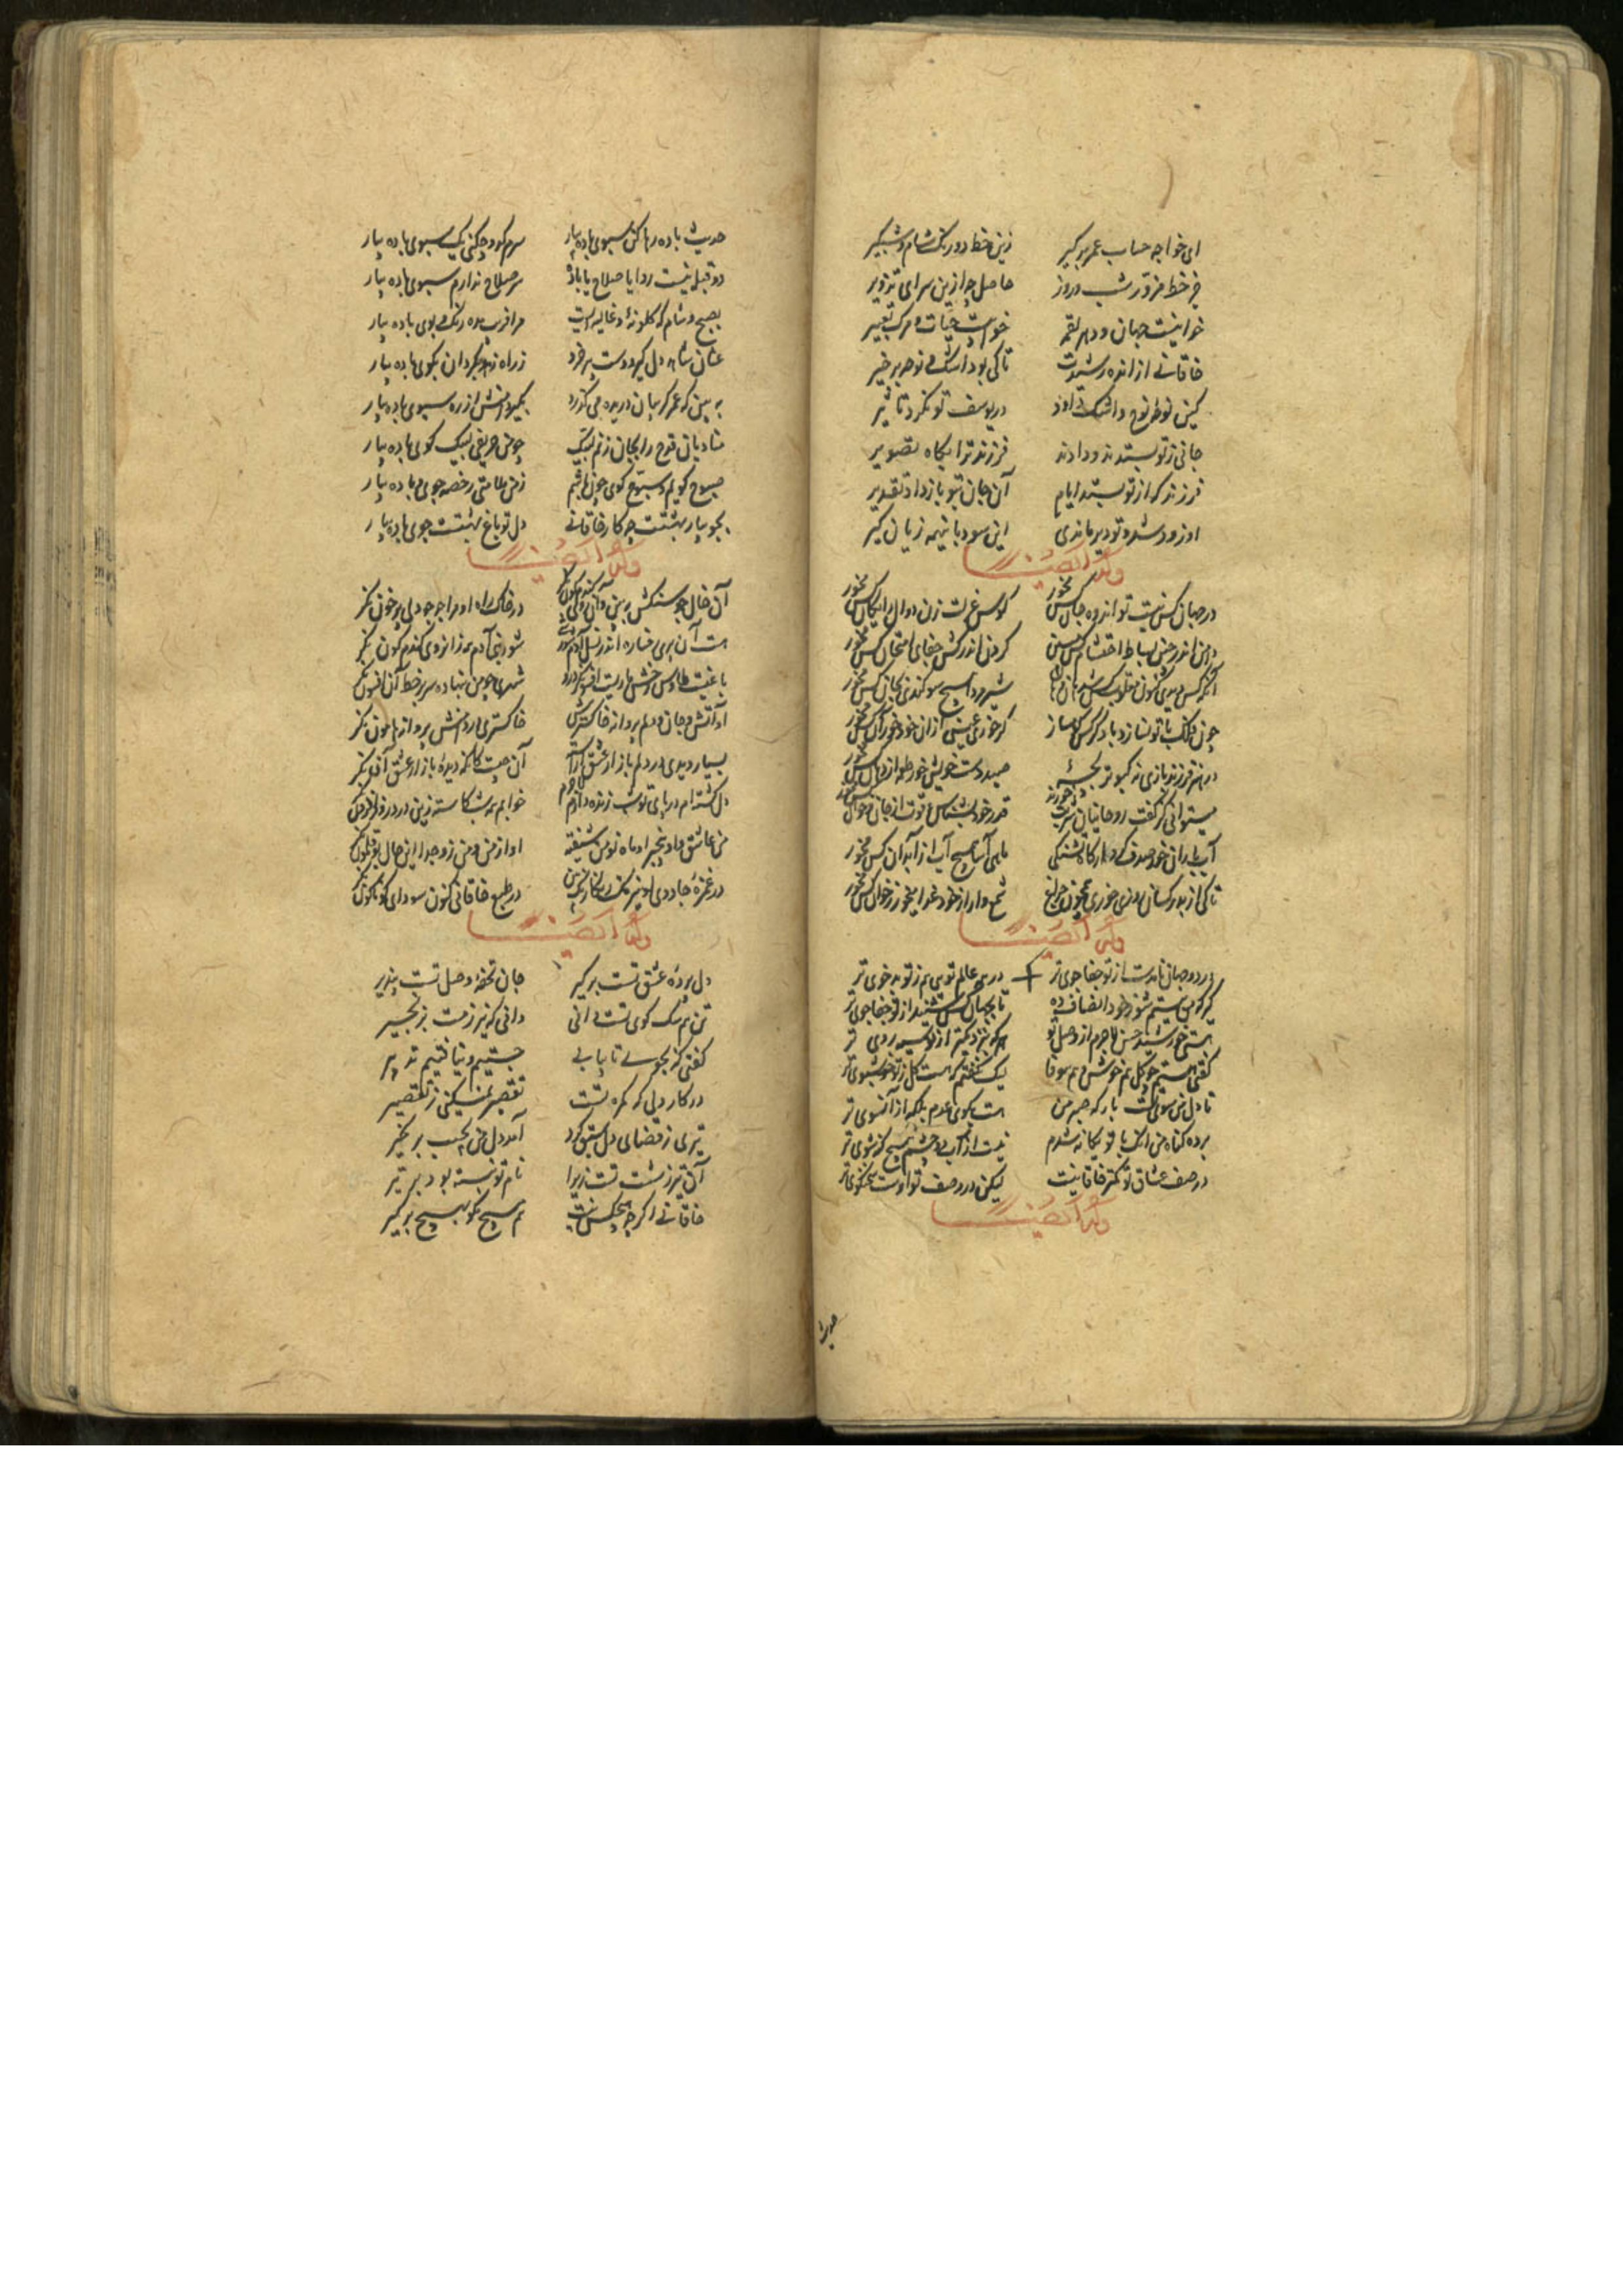 ای خواجه حساب عمر برگیر زین خط دو رنگ شام و شبگیر
جز خط مزور شب و روز حاصل چه ازین سرای تزویر
خوابیست جهان و دهر لقمه خوابست حیات و مرگ تعبیر
خاقانی ازانده رشیدت تا کی بود اشک و نوحه بر خیر
کین نوحه نوح و اشک داود در یوسف تو نکرد تاثیر
جانی ز تو بستدند و دادند فرزند ترا بگاه تصویر
فرزند که از تو بستد ایام آن جان بتو باز داد تقدیر
او زود شد و تو دیر ماندی این سود با نیمه زیان گیر
وله ایضا
در جهان کس نیست تو اندوه جان کس مخور کوس عزلت زن دوال رایگان کس مخور
دامن اندر چین بساط احتشام کس مبین گردن اندر کش جفای امتحان کس مخور
شیر و دا هیچ سوگندی بجان کس مخور
چون فلک با تو نسازد با دگر کس مساز گر خوری عیشی از آن خود خور آن کس مخور
در هنر فرزند بازی نه کبوتر بچهٔ صید دست خویش خور طعم از دهان کس مخور
میتوانی کز کف روحانیان شربت خوری قدر خود بشناس قوت از جان و خوان کس مخور
آب باران خور صدف کردار گاه تشنگی ماهی آسا هیچ آب از آبدان کس مخور
تا کی از بدر کسان روزی خوری همچون چراغ شمع وار از خود غذا میخور ز خوان کس مخور
وله ایضا
در دو جهان نامدست از تو جفاجوی تر در همه عالم توی هم ز تو بدخوی تر
گر که من بیستم شنو خود انصاف ده تا بجهان کس شنید از تو جفاجوی تر
هستی خورشید حسن لاجرم از وصل تو هر که بنزدیکتر از تو سیه روی تر
گفتی هستم چو گل هم خوش و هم بیوفا لیک نگفتم که هست گل ز تو خوشبوی تر
تا دل من سوی تست بارگه صبر من هست بکوی عدم بلکه از آنسوی تر
برده گناه من انک با تو یگانه شدم نیست از آب دو چشم هیچ گنه شوی تر
در صف عشاق تو کمتر خاقانیست لیکن در وصف تو اوست سخنگوی تر
وله ایضا
حدیث
حدیث باده رها کن سبوی باده بیار سرم گرو چکنی یک سبوی باده بیار
دو قبله نیست روا یا صلاح یا باده سر صلاح ندارم سبوی باده بیار
بصبح و شام که گلگونهٔ و غالیه ایست مرا فریب ده رنگ و بوی باده بیار
عنان شاهد دل گیر و دست پیر خرد ز راه زهد بگردان بکوی باده بیار
ببین که عمر گریبان دریده می‌گذرد بگیر دامنش از ره بسوی باده بیار
منادیان قدح را بجان زنم لبیک چو من حریفی لبیک گوی باده بیار
صبوح گویم و سبوح گوی چون باشم ز من ملامتی رخصه جوی باده بیار
بجویبار بهشتت چه کار خاقانی دل تو باغ بهشتت جوی باده بیار
وله ایضا
آن خال جو سنگش ببین آن روی گندم‌گون نگر در خاک راه او مرا جو جو دلی پر خون نگر
هست آن پری رخساره اندر نسل آدم شورشی شور بنی آدم همه زانروی گندم گون نگر
با غیست طاوس رخش ماریست افسونگر درو شهدی چو من بنهاده سر بر خط آن افسون نگر
او آتش و جان و دلم پروانه خاکسترش خاکستری در دامنش پروانه پیرامون نگر
بسیار دیدی در دلم بازار عشق آراسته آن چیست کانگه دیدهٔ بازار عشق اکنون نگر
دل کشته‌ام در پای تو شب زنده دارم لاجرم خوابم همه شب کاسته زین درد روز افزون نگر
من عاشق و او بیخبر او ماه نو من شیفته او از من و من زو جدا این حال بوقلمون نگر
در غمزهٔ جادوی او نیرنگ رنگارنگ بین در طبع خاقانی کنون سودای گوناگون نگر
وله ایضا
دل بردهٔ عشق تست برگیر جان تحفهٔ وصل تست بپذیر
تن هم سگ کوی تست دانی دانی که نیرزدت بزنجیر
گفتی که بجوی تا بیابی جستیم و نیافتیم تدبیر
در کار دلی که گمره تست تقصیر نمیکنی ز تقصیر
تیری ز قضای دل سبق کرد آمد دل من بجست بر خیر
آن تیر ز شست تست زیرا نام تو نبشته بود بر تیر
خاقانی اگر چه هیچکس نیست هم هیچ مگو بهیچ برگیر